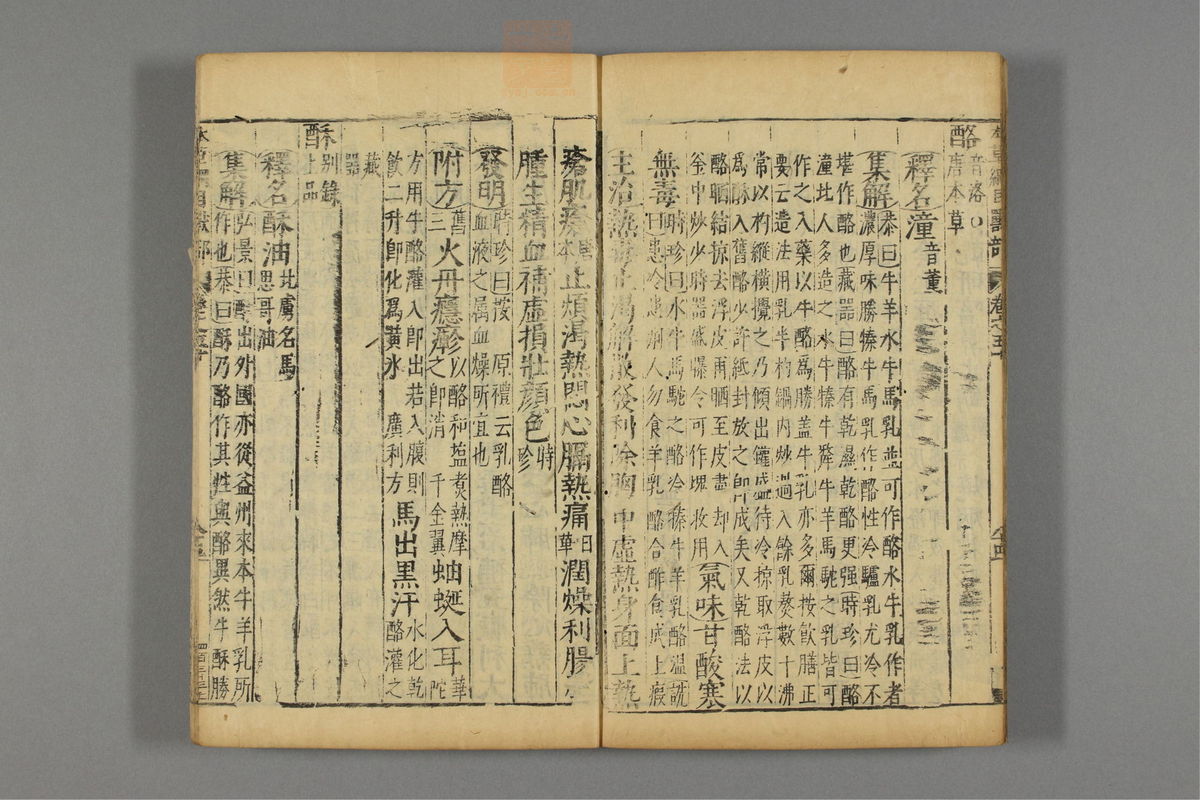 本草綱目獸部 卷之五十
酪音洛○
唐本草
釋名潼音董
集解恭曰牛羊水牛馬乳並可作酪水牛乳作者
濃厚味勝㹀牛馬乳作酪性冷驢乳尤冷不
堪作酪也藏器曰酪有乾濕乾酪更强時珍曰酪
潼北人多造之水牛㹀牛犛牛羊馬駝之乳皆可
作之入藥以牛酪為勝蓋牛乳亦多爾按飲膳正
要云造法用乳半杓鍋內炒過入餘乳熬數十沸
常以杓縱橫攪之乃傾出罐盛待冷掠取浮皮以
為酥入舊酪少許紙封放之即成矣又乾酪法以
酪晒結掠去浮皮再晒至皮盡却入
釜中炒少時器盛曝令可作塊收用
氣味甘酸寒
無毒時珍曰水牛馬駝之酪冷㹀牛羊乳酪溫詵
曰患冷患痢人勿食羊乳酪合酢食成上瘕
主治熱毒止渴解散發利除胸中虛熱身面上熱
瘡肌瘡唐本止煩渴熱悶心膈熱痛日華潤燥利腸
腫生精血補虛損壯顏色時珍
發明時珍曰按 原禮云乳酪
血液之属血燥所宜也
附方舊三火丹癮疹以酪和塩煮熱摩之即消千金翼蚰蜒入耳華陀
方用牛酪灌入即出若入腹則
飲二升即化為黃水廣利方
馬出黑汗水化乾酪灌之
藏器
酥別錄上品
釋名酥油北虜名馬思哥油
集解弘景曰酥出外國亦從益州來本牛羊乳所
作也恭曰酥乃酪作其性與酪異然牛酥勝